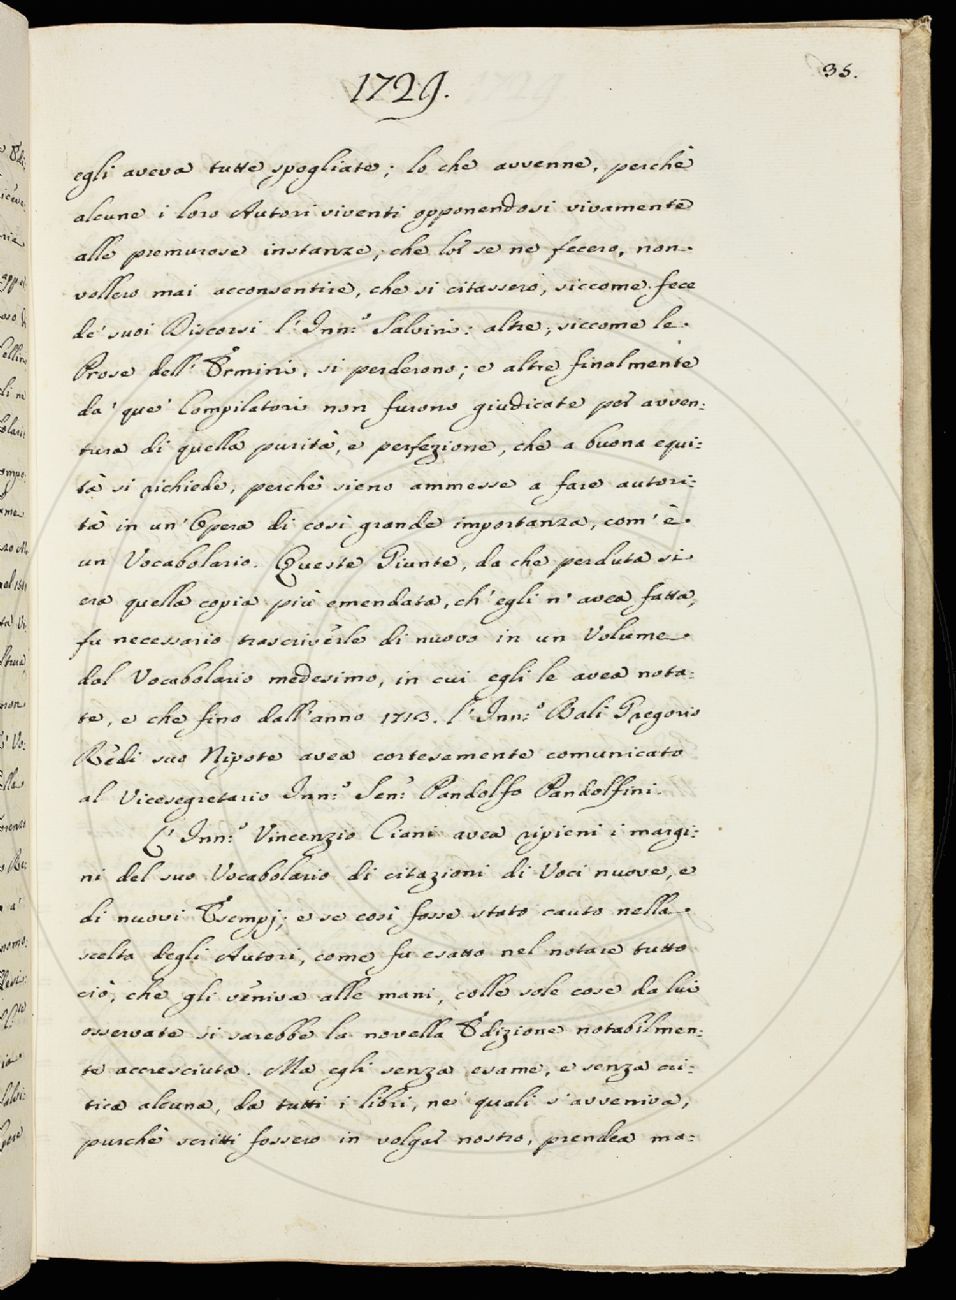 35.
1729.
egli aveva tutte spogliate; lo che avvenne, perchè
alcune i loro Autori viventi opponendosi vivamente
alle premurose instanze, che lor se ne fecero, non
vollero mai acconsentire, che si citassero, siccome fece
de' suoi Discorsi l'Inn:º Salvini: altre, siccome le
Prose dell'Ermini, si perderono; e altre finalmente
da' que' Compilatori non furono giudicate per avven:
tura di quella purità, e perfezione, che a buona equi:
tà si richiede, perchè sieno ammesse a fare autori:
tà in un'Opera di così grande importanza, com'è
un Vocabolario. Queste Giunte, da che perduta si
era quella copia più emendata, ch'egli n'avea fatta,
fu necessario trascriverle di nuovo in un Volume
dal Vocabolario medesimo, in cui egli le avea nota:
te, e che fino dall'anno 1713. l'Inn:º Balì Gregorio
Redi suo Nipote avea cortesemente comunicato
al Vicesegretario Inn:º Sen: Pandolfo Pandolfini.
L'Inn:º Vincenzio Ciani avea ripieni i margi:
ni del suo Vocabolario di citazioni di Voci nuove, e
di nuovi Esempj; e se così fosse stato cauto nella
scelta degli Autori, come fu esatto nel notare tutto
ciò, che gli veniva alle mani, colle sole cose da lui
osservate si sarebbe la novella Edizione notabilmen:
te accresciuta. Ma egli senza esame, e senza cri:
tica alcuna, da tutti i libri, ne' quali s'avveniva,
purchè scritti fossero in volgar nostro, prendea ma: